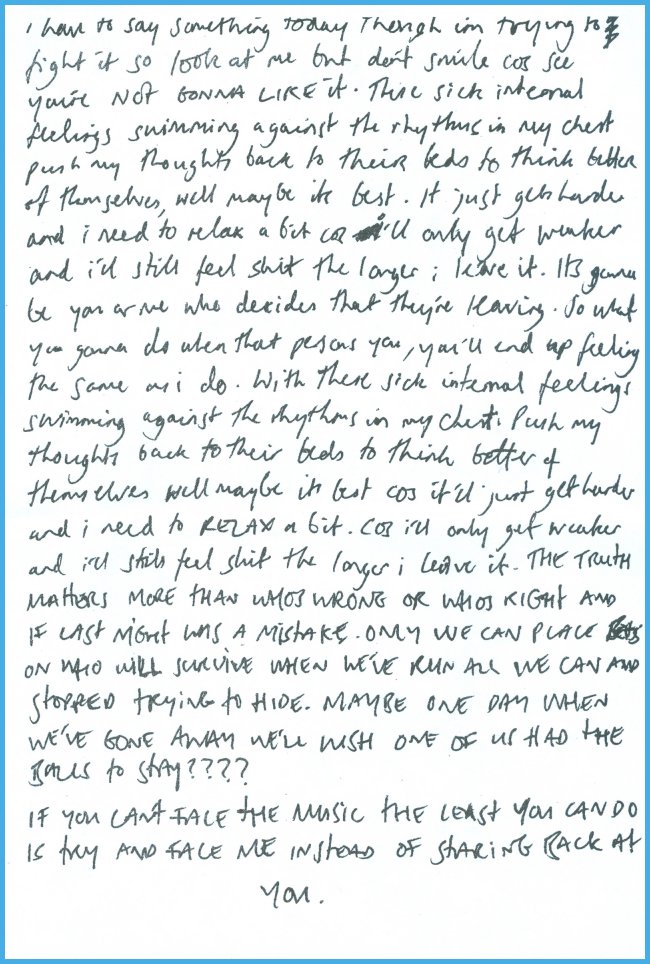 i have to say something today Though im trying to
fight it so look at me but don't smile cos see
you're NOT GONNA LIKE it. These sick internal
feelings swimming against the rhythms in my chest
push my thoughts back to their beds to think better
of themselves, well maybe its best. It just gets harder
and i need to relax a bit cos i'll only get weaker
and i'll still feel shit the longer i leave it. It's gonna
be you or me who decides that they're leaving. So what
you gonna do when that persons you, you'll end up feeling
the same as i do. With These sick internal feelings
swimming against the rhythms in my chest. Push my
thoughts back to their beds to think better of
themselves well maybe its best cos it'll just get harder
and i need to RELAX a bit. Cos i'll only get weaker
and i'll still feel shit the longer i leave it. THE TRUTH
MATTERS MORE THAN WHOS WRONG OR WHOS RIGHT AND
IF LAST NIGHT WAS A MISTAKE. ONLY WE CAN PLACE BETS
ON WHO WILL SURVIVE WHEN WE'VE RUN ALL WE CAN AND
STOPPED TRYING to HIDE. MAYBE ONE DAY WHEN
WE'VE GONE AWAY WE'LL WISH ONE OF US HAD THE
BALLS to STAY????
IF YOU CANT FACE THE MUSIC THE LEAST YOU CAN DO
IS TRY AND FACE ME INSTEAD OF STARING BACK AT
YOU.